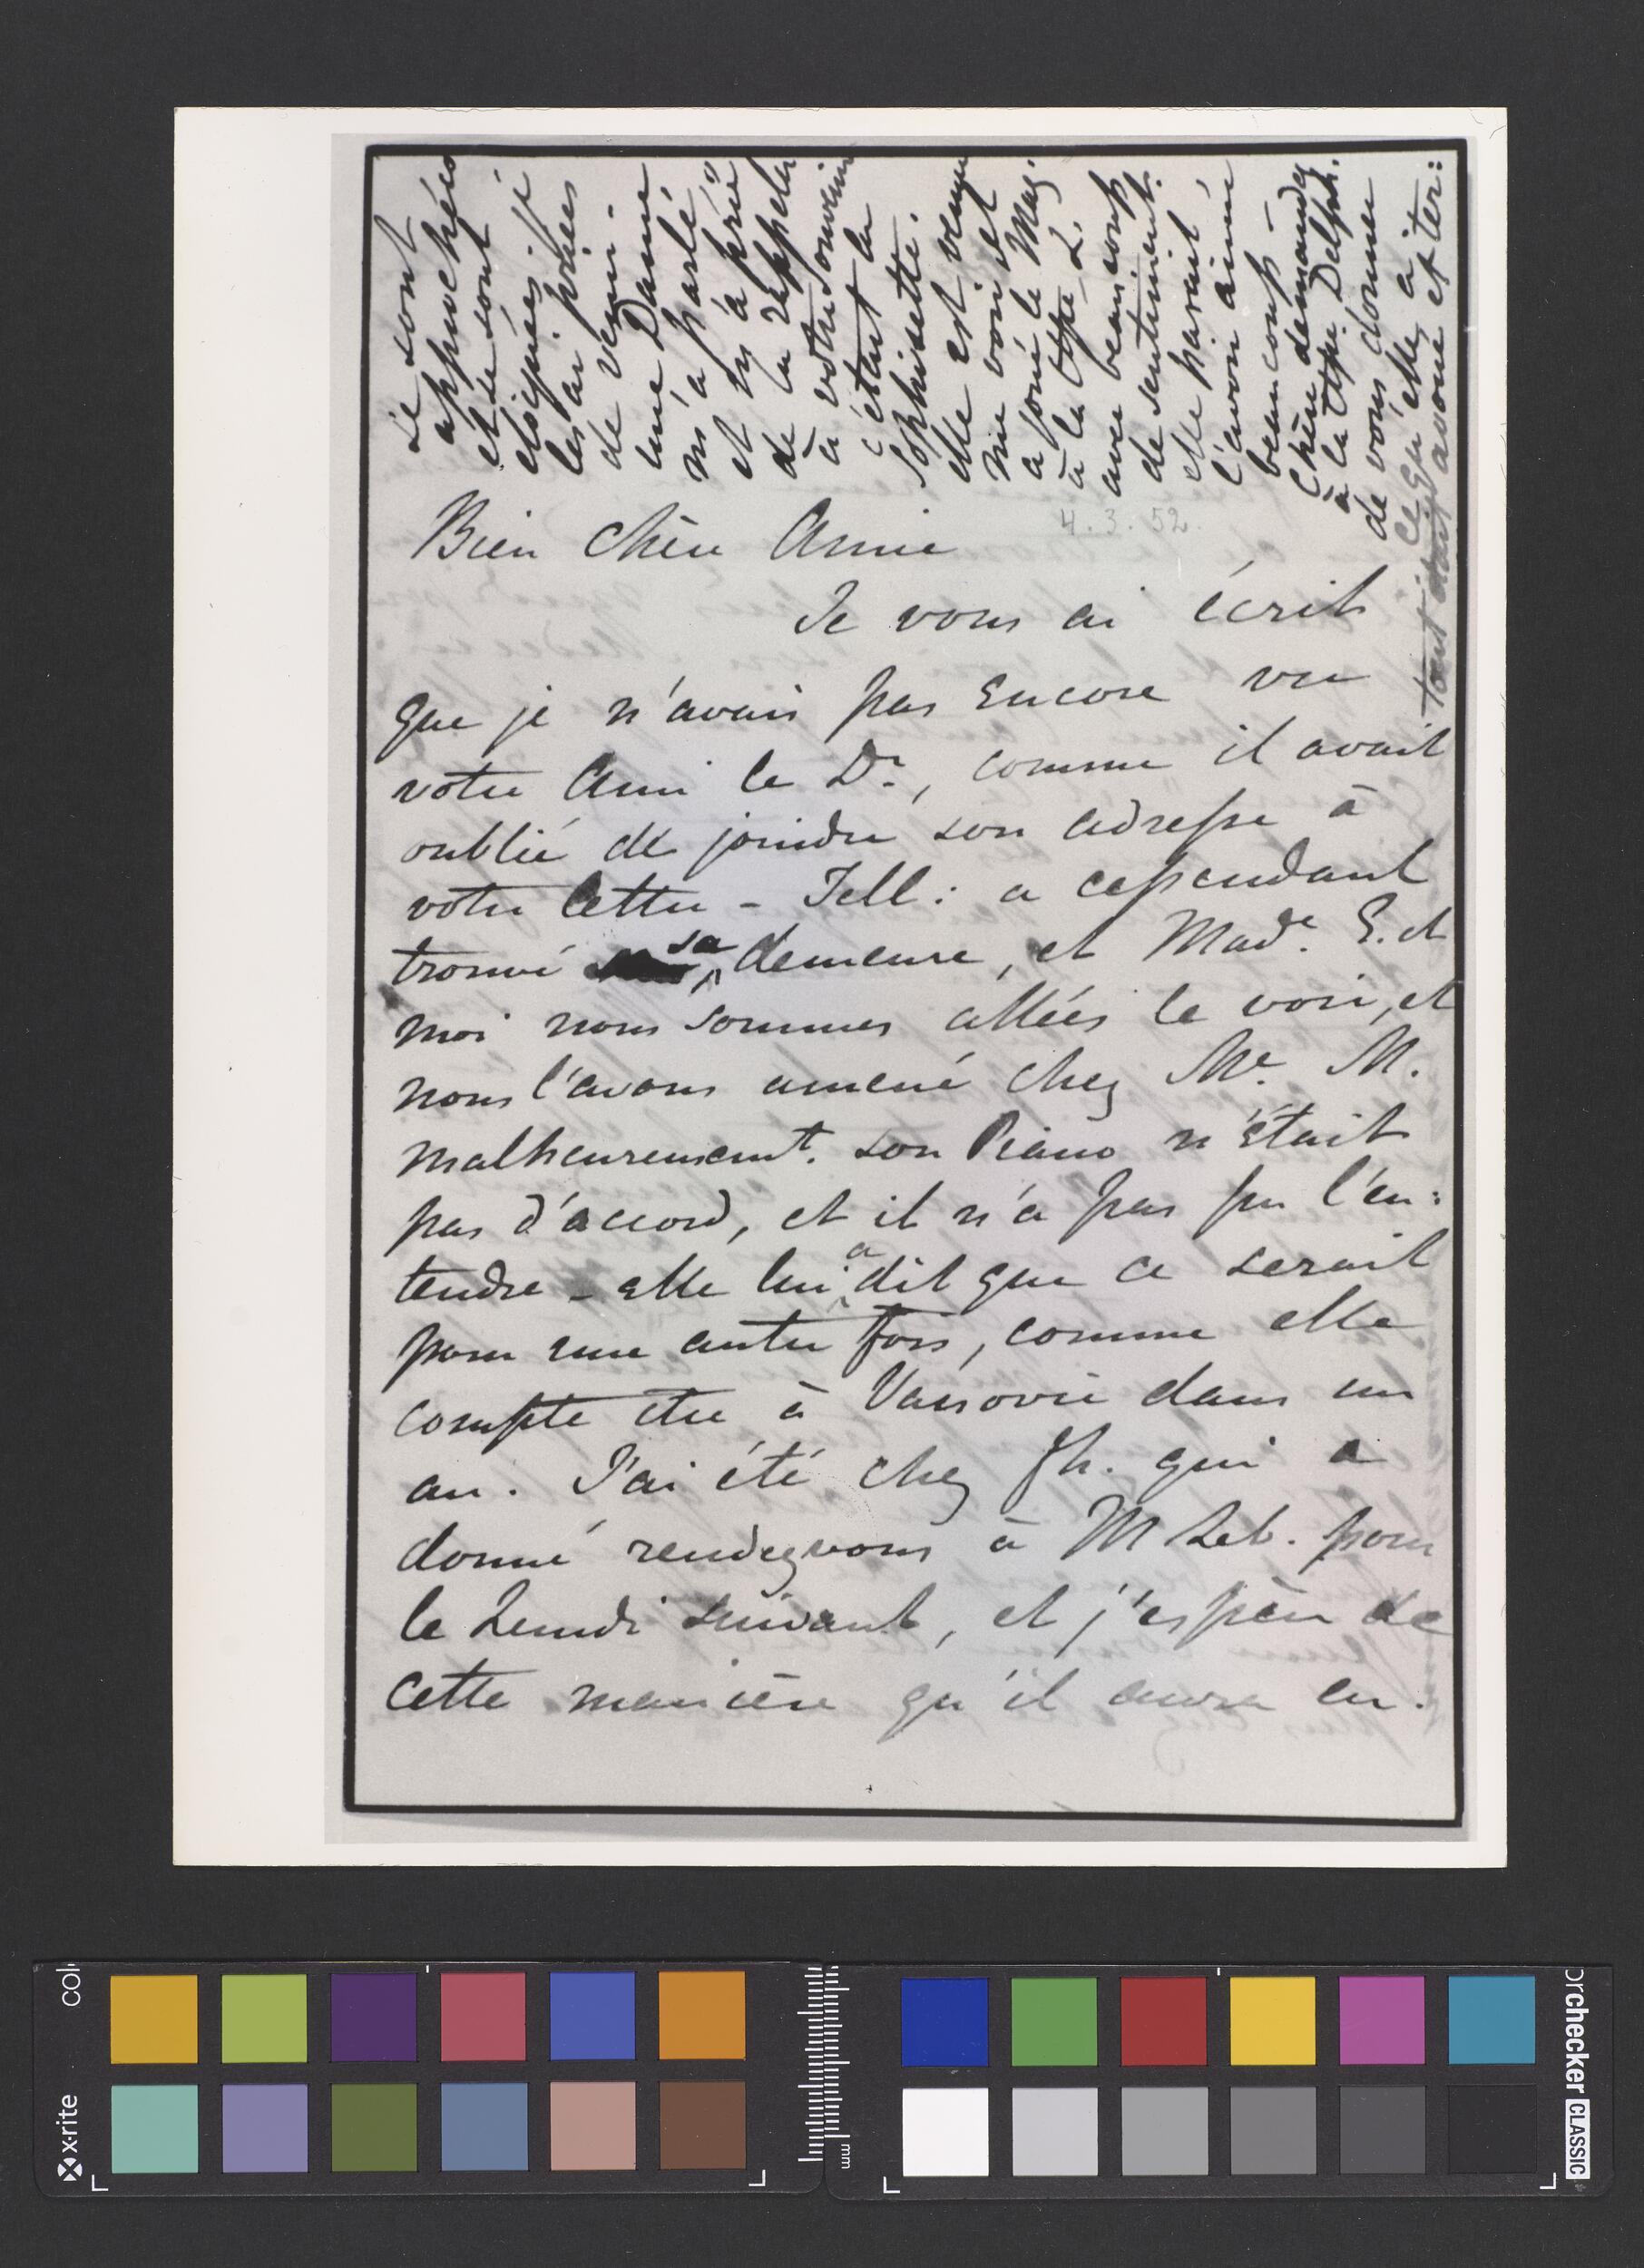 se sont
approchées
et se sont
éloignées, je
les ai priées
de venir.
une Dame
m'a parlé
et m'a prié
de la rappeler
à votre souvenir
c'était la
Sophisette.
elle est venue
me voir et
a joué la Maz.
à la Csse L.
avec beaucoup
de sentiment.
elle parait
l'avoir aimé
beaucoup –
Chère demandez
à la Csse Delph.
de vous donner
ce qu'elle a
tout doit avoué et ter:
4.3.52.
Bien chère Amie
Je vous ai écrit
que je n'avais pas encore vu
votre Ami le Dr., comme il avait
oublié de joindre son adresse à
votre lettre – Tell: a cependant
trouvé sa demeure, et Made. E. et
moi nous sommes allées le voir, et
nous l'avons amené chez Me. M.
malheureusemt. son Piano n'était
pas d'accord, et il n'a pas pu l'en:
tendre – elle lui a dit que ce serait
pour une autre fois, comme elle
compte être à Varsovie dans un
an. J'ai été chez Th. qui a
donné rendezvous à M Leb. pour
le Lundi suivant, et j'espère de
cette manière qu'il aura en.
x-rite
mm
colorchecker CLASSIC